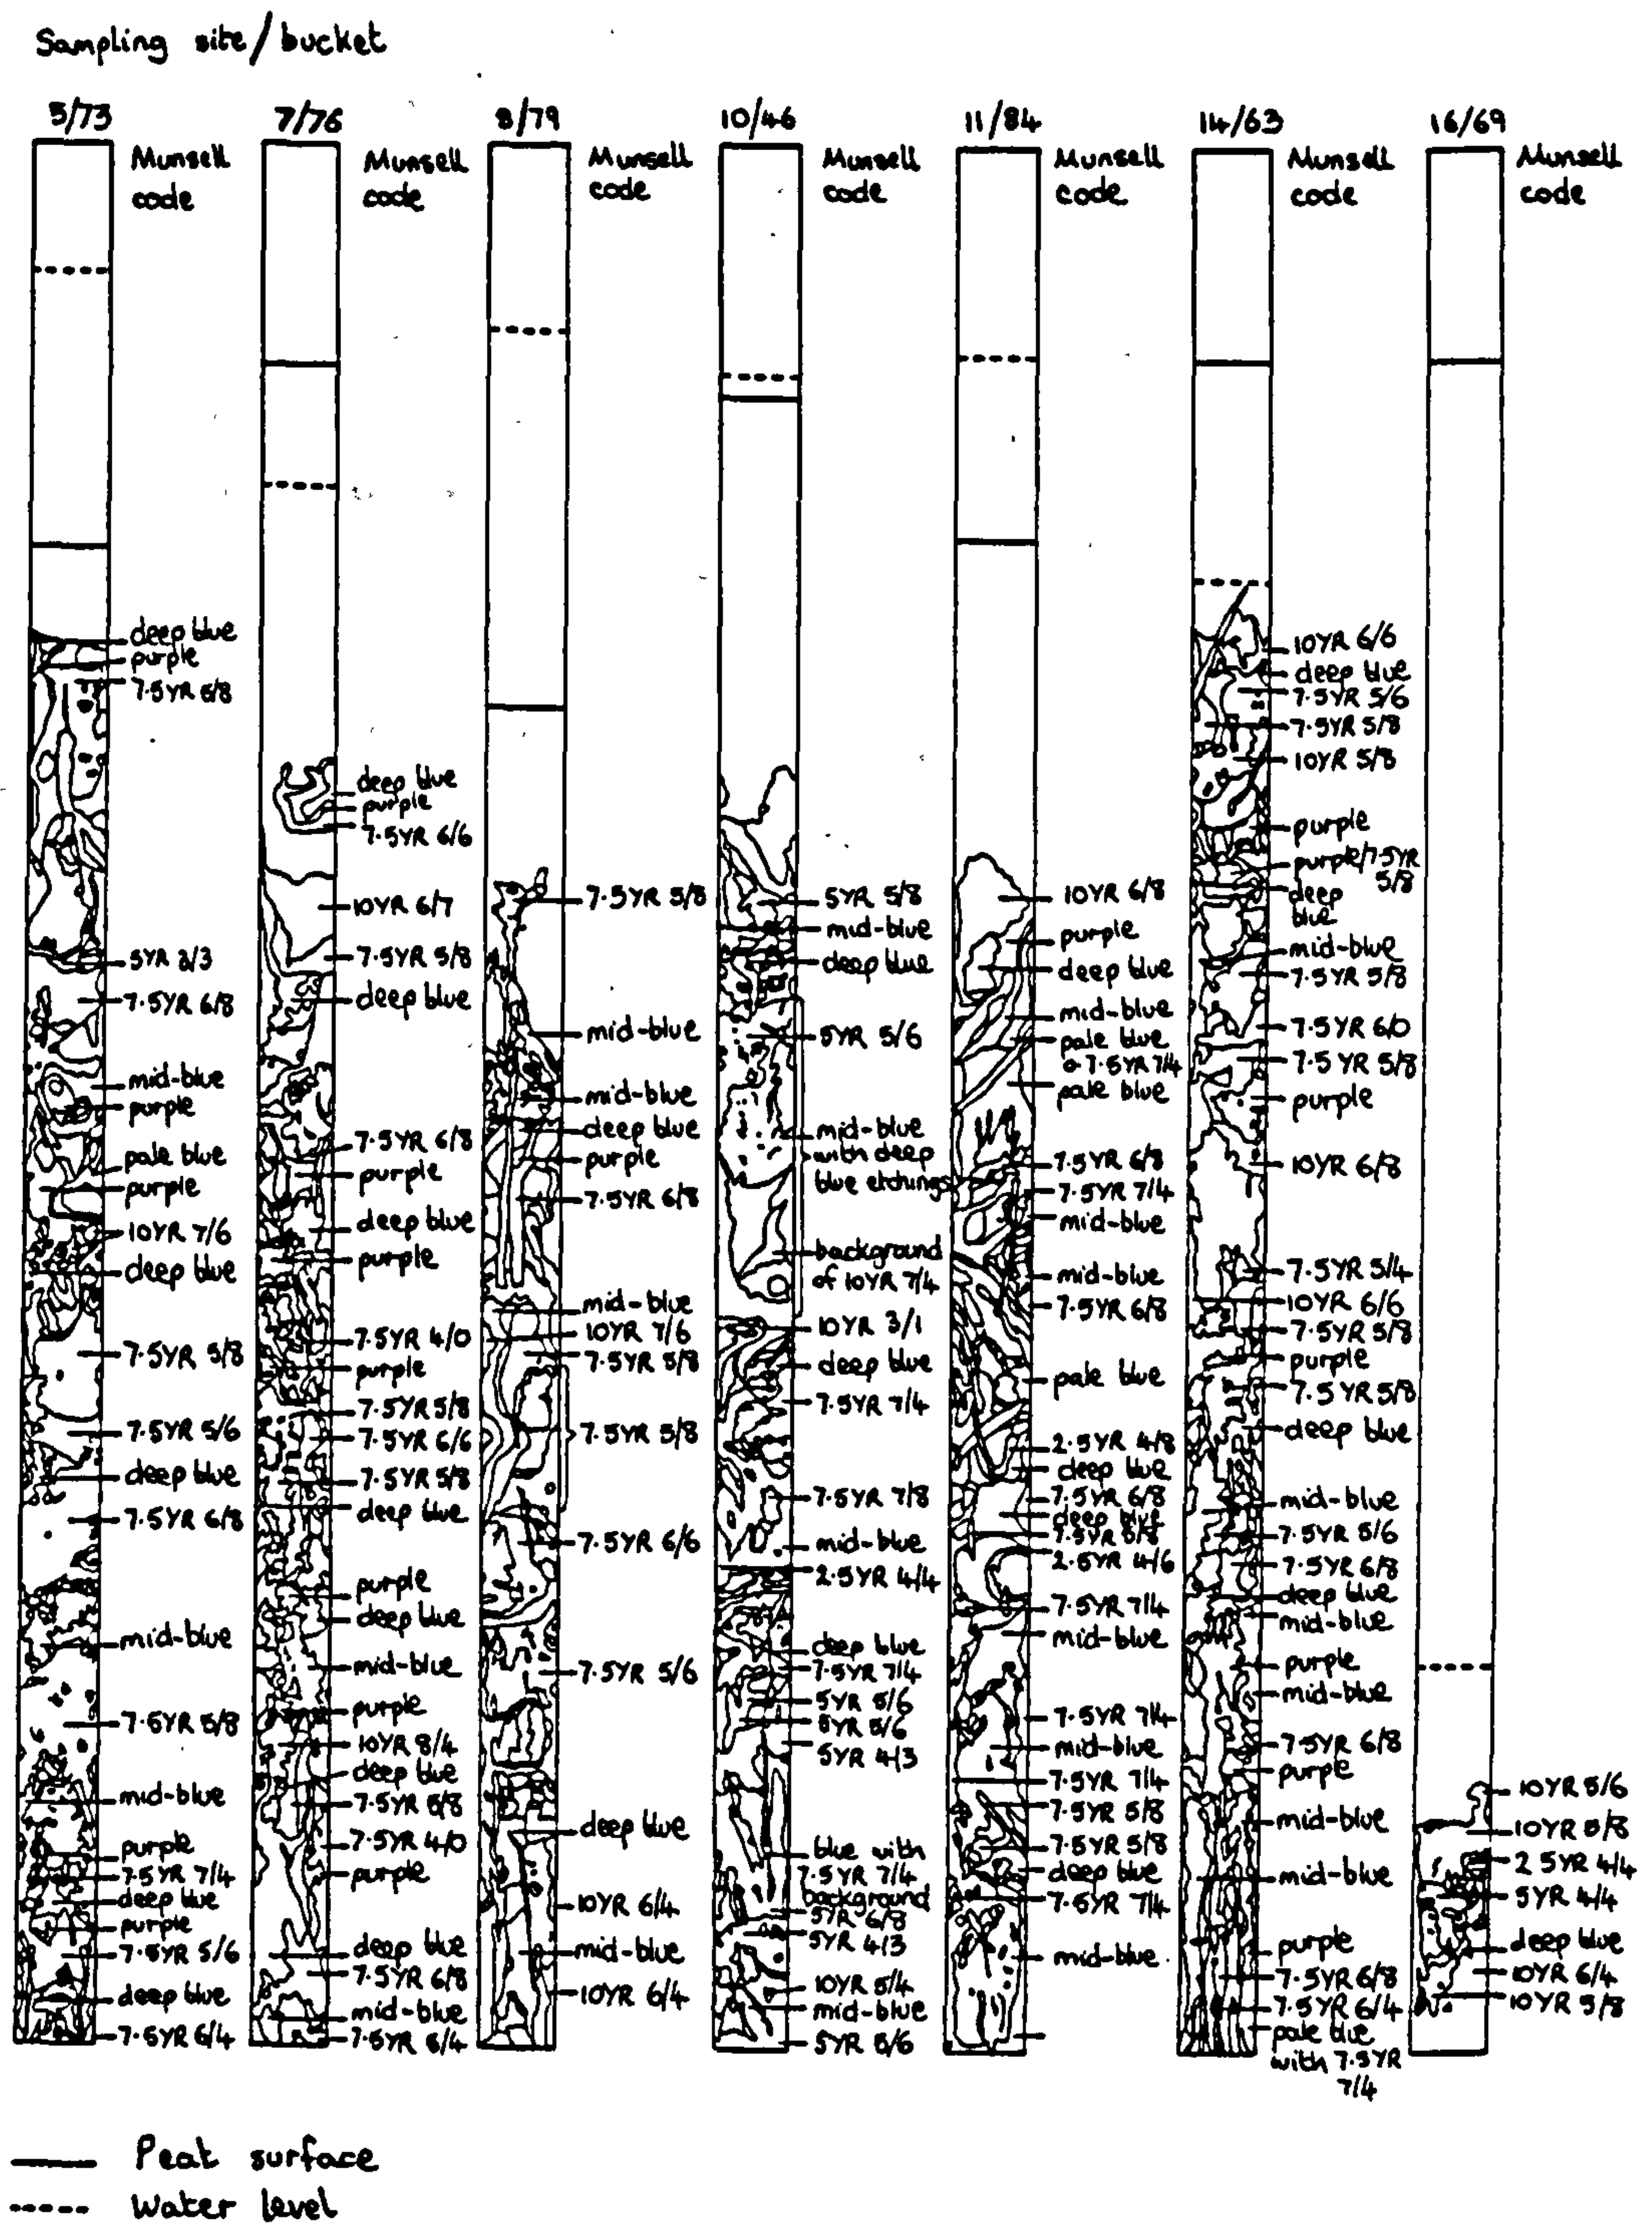 Sampling site/bucket
5/73
Munsell
code
deep blue
purple
7.5YR 6/8
5YR 3/3
7.5YR 6/8
mid-blue
purple
pale blue
purple
10YR 7/6
deep blue
7.5YR 5/8
7.5YR 5/6
deep blue
7.5YR 6/8
mid-blue
7.5YR 5/8
mid-blue
purple
7.5YR 7/4
deep blue
purple
7.5YR 5/6
deep blue
7.5YR 6/4
7/76
Munsell
code
deep blue
purple
7.5YR 6/6
10YR 6/7
7.5YR 5/8
deep blue
7.5YR 6/8
purple
deep blue
purple
7.5YR 4/0
purple
7.5YR 5/8
7.5YR 6/6
7.5YR 5/8
deep blue
purple
deep blue
mid-blue
purple
10YR 8/4
deep blue
7.5YR 5/8
7.5YR 4/0
purple
deep blue
7.5YR 6/8
mid-blue
7.5YR 5/4
8/79
Munsell
code
7.5YR 5/8
mid-blue
mid-blue
deep blue
purple
7.5YR 6/8
mid-blue
10YR 7/6
7.5YR 5/8
7.5YR 5/8
7.5YR 6/6
7.5YR 5/6
deep blue
10YR 6/4
mid-blue
10YR 6/4
10/46
Munsell
code
5YR 5/8
mid-blue
deep blue
5YR 5/6
mid-blue
with deep
blue etchings
background
of 10YR 7/4
10YR 3/1
deep blue
7.5YR 7/4
7.5YR 7/8
mid-blue
2.5YR 4/4
deep blue
7.5YR 7/4
5YR 5/6
5YR 5/6
5YR 4/3
blue with
7.5YR 7/4
background
5YR 6/8
5YR 4/3
10YR 5/4
mid-blue
5YR 5/6
11/84
Munsell
code
10YR 6/8
purple
deep blue
mid-blue
pale blue
& 7.5YR 7/4
pale blue
7.5YR 6/8
7.5YR 7/4
mid-blue
mid-blue
7.5YR 6/8
pale blue
2.5YR 4/8
deep blue
7.5YR 6/8
deep blue
7.5YR 5/8
2.5YR 4/6
7.5YR 7/4
mid-blue
7.5YR 7/4
mid-blue
7.5YR 7/4
7.5YR 5/8
7.5YR 5/8
deep blue
7.5YR 7/4
mid-blue.
14/63
Munsell
code
10YR 6/6
deep blue
7.5YR 5/6
7.5YR 5/8
10YR 5/8
purple
purple/7.5YR
5/8
deep
blue
mid-blue
7.5YR 5/8
7.5YR 6/0
7.5YR 5/8
purple
10YR 6/8
7.5YR 5/4
10YR 6/6
7.5YR 5/8
purple
7.5YR 5/8
deep blue
mid-blue
7.5YR 5/6
7.5YR 6/8
deep blue
mid-blue
purple
mid-blue
7.5YR 6/8
purple
mid-blue
mid-blue
purple
7.5YR 6/8
7.5YR 6/4
pale blue
with 7.5YR
7/4
16/69
Munsell
code
10YR 5/6
10YR 5/8
2 5YR 4/4
5YR 4/4
deep blue
10YR 6/4
10YR 5/8
Peat surface
Water level